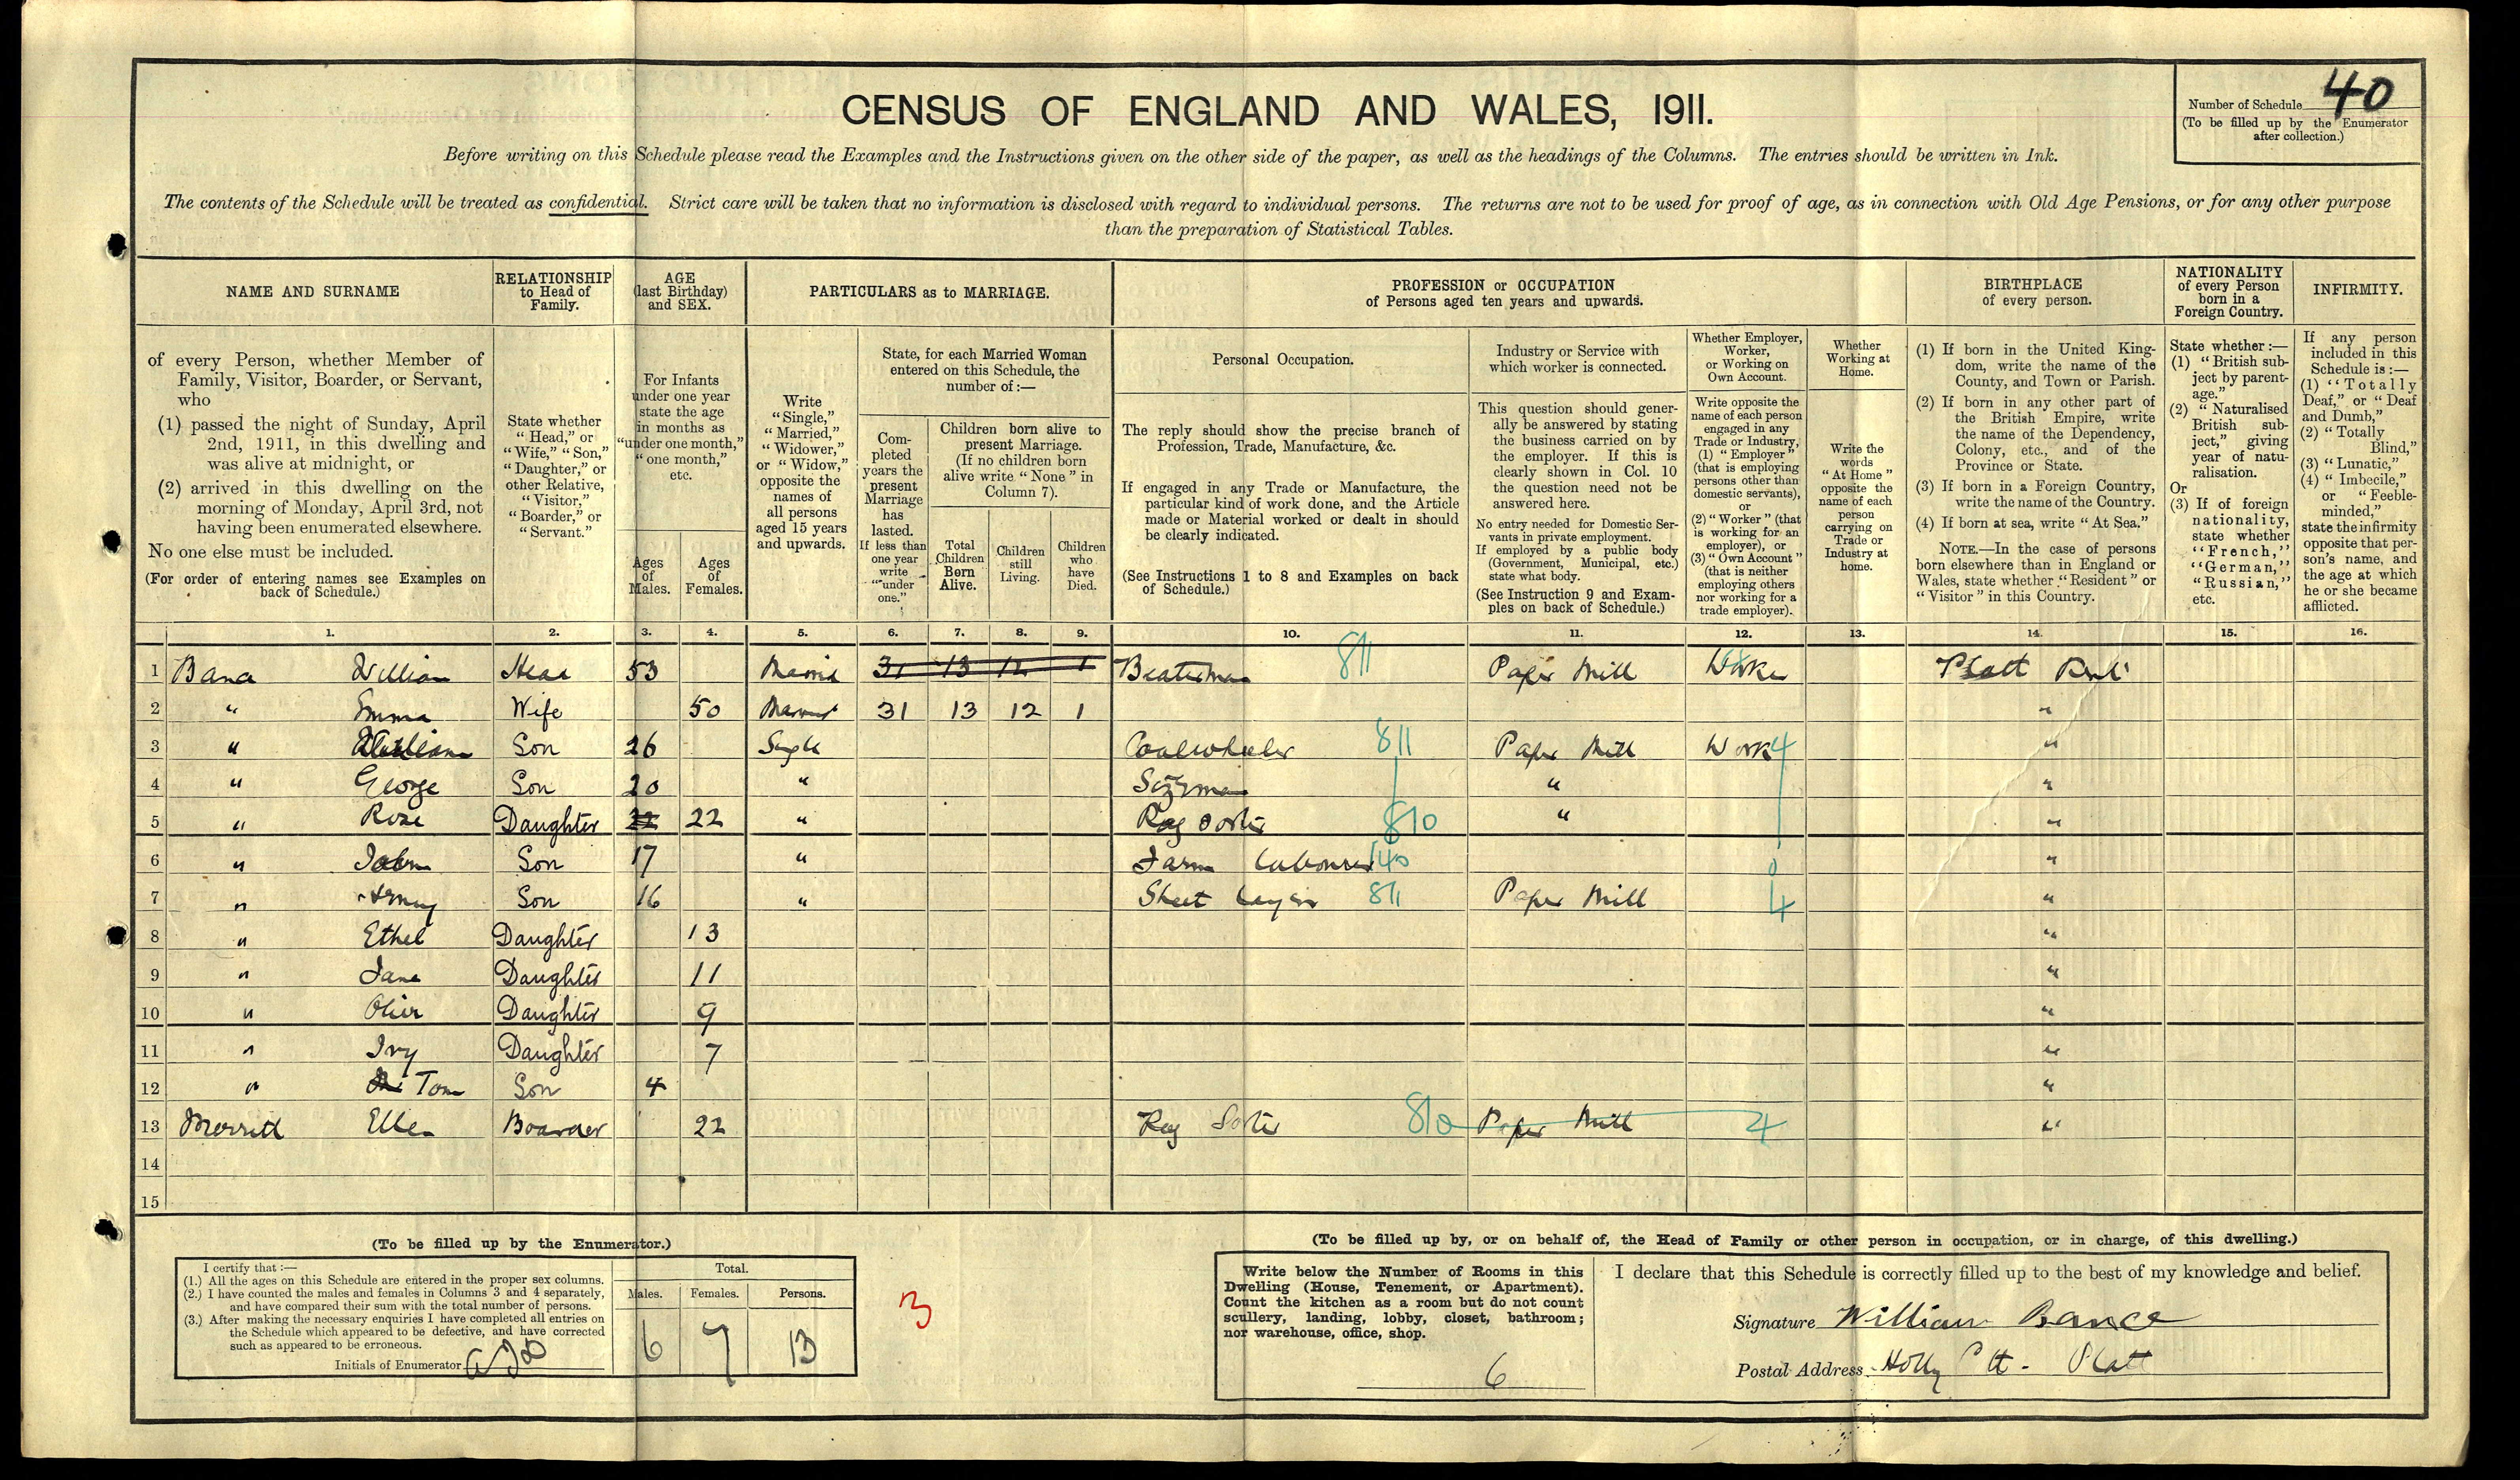 CENSUS OF ENGLAND AND WALES, 1911.
Number of Schedule 40
(To be filled up by the Enumerator
after collection.)
Before writing on this Schedule please read the Examples and the Instructions given on the other side of the paper, as well as the headings of the Columns. The entries should be written in Ink.
The contents of the Schedule will be treated as confidential. Strict care will be taken that no information is disclosed with regard to individual persons. The returns are not to be used for proof of age, as in connection with Old Age Pensions, or for any other purpose
than the preparation of Statistical Tables.
NAME AND SURNAME
of every Person, whether Member of
Family, Visitor, Boarder, or Servant,
who
(1) passed the night of Sunday, April
2nd, 1911, in this dwelling and
was alive at midnight, or
(2) arrived in this dwelling on the
morning of Monday, April 3rd, not
having been enumerated elsewhere.
No one else must be included.
(For order of entering names see Examples on
back of Schedule.)
RELATIONSHIP
to Head of
Family.
State whether
"Head," or
"Wife," "Son,"
"Daughter," or
other Relative,
"Visitor,"
"Boarder," or
"Servant."
AGE
(last Birthday)
and SEX.
For Infants
under one year
state the age
in months as
"under one month,"
"one month,"
etc.
Ages
of
Males.
Ages
of
Females.
PARTICULARS as to MARRIAGE.
Write
"Single,"
"Married,"
"Widower,"
or "Widow,"
opposite the
names of
all persons
aged 15 years
and upwards.
State, for each Married Woman
entered on this Schedule, the
number of:—
Com-
pleted
years the
present
Marriage
has
lasted.
If less than
one year
write
"under
one."
Children born alive to
present Marriage.
(If no children born
alive write "None" in
Column 7).
Total
Children
Born
Alive.
Children
still
Living.
Children
who
have
Died.
PROFESSION or OCCUPATION
of Persons aged ten years and upwards.
Personal Occupation.
The reply should show the precise branch of
Profession, Trade, Manufacture, &c.
If engaged in any Trade or Manufacture, the
particular kind of work done, and the Article
made or Material worked or dealt in should
be clearly indicated.
(See Instructions 1 to 8 and Examples on back
of Schedule.)
Industry or Service with
which worker is connected.
This question should gener-
ally be answered by stating
the business carried on by
the employer. If this is
clearly shown in Col. 10
the question need not be
answered here.
No entry needed for Domestic Ser-
vants in private employment.
If employed by a public body
(Government, Municipal, etc.)
state what body.
(See Instruction 9 and Exam-
ples on back of Schedule.)
Whether Employer,
Worker,
or Working on
Own Account.
Write opposite the
name of each person
engaged in any
Trade or Industry,
(1) "Employer"
(that is employing
persons other than
domestic servants),
or
(2) "Worker" (that
is working for an
employer), or
(3) "Own Account"
(that is neither
employing others
nor working for a
trade employer).
Whether
Working at
Home.
Write the
words
"At Home"
opposite the
name of each
person
carrying on
Trade or
Industry at
home.
BIRTHPLACE
of every person.
(1) If born in the United King-
dom, write the name of the
County, and Town or Parish.
(2) If born in any other part of
the British Empire, write
the name of the Dependency,
Colony, etc., and of the
Province or State.
(3) If born in a Foreign Country,
write the name of the Country.
(4) If born at sea, write "At Sea."
NOTE.—In the case of persons
born elsewhere than in England or
Wales, state whether "Resident" or
"Visitor" in this Country.
NATIONALITY
of every Person
born in a
Foreign Country.
State whether:—
(1) "British sub-
ject by parent-
age."
(2) "Naturalised
British sub-
ject," giving
year of natu-
ralisation.
Or
(3) If of foreign
nationality,
state whether
"French,"
"German,"
"Russian,"
etc.
INFIRMITY.
If any person
included in this
Schedule is:—
(1) "Totally
Deaf," or "Deaf
and Dumb,"
(2) "Totally
Blind,"
(3) "Lunatic,"
(4) "Imbecile,"
or "Feeble-
minded,"
state the infirmity
opposite that per-
son's name, and
the age at which
he or she became
afflicted.
1. 2. 3. 4. 5. 6. 7. 8. 9. 10. 11. 12. 13. 14. 15. 16.
1 Bance William Head 53 Married 31 13 12 1 Beaterman 811 Paper Mill Worker Platt Kent
2 " Emma Wife 50 Married 31 13 12 1 "
3 " William Son 26 Single Coalwheeler 811 Paper Mill Work 4 "
4 " George Son 20 " " "
5 " Rose Daughter 22 22 " Rag Sorter 810 " "
6 " John Son 17 " Farm Labourer 140 0 "
7 " Son 16 " Sheet Layer 811 Paper Mill 4 "
8 " Ethel Daughter 13 "
9 " Jane Daughter 11 "
10 " Olive Daughter 9 "
11 " Ivy Daughter 7 "
12 " Tom Son 4 "
13 Merritt Ellen Boarder 22 Rag Sorter 810 Paper Mill 4 "
14
15
(To be filled up by the Enumerator.)
I certify that:—
(1.) All the ages on this Schedule are entered in the proper sex columns.
(2.) I have counted the males and females in Columns 3 and 4 separately,
and have compared their sum with the total number of persons.
(3.) After making the necessary enquiries I have completed all entries on
the Schedule which appeared to be defective, and have corrected
such as appeared to be erroneous.
Initials of Enumerator
Total.
Males. Females. Persons.
6 7 13
3
(To be filled up by, or on behalf of, the Head of Family or other person in occupation, or in charge, of this dwelling.)
Write below the Number of Rooms in this
Dwelling (House, Tenement, or Apartment).
Count the kitchen as a room but do not count
scullery, landing, lobby, closet, bathroom;
nor warehouse, office, shop.
6
I declare that this Schedule is correctly filled up to the best of my knowledge and belief.
Signature William Bance
Postal Address Holly Platt